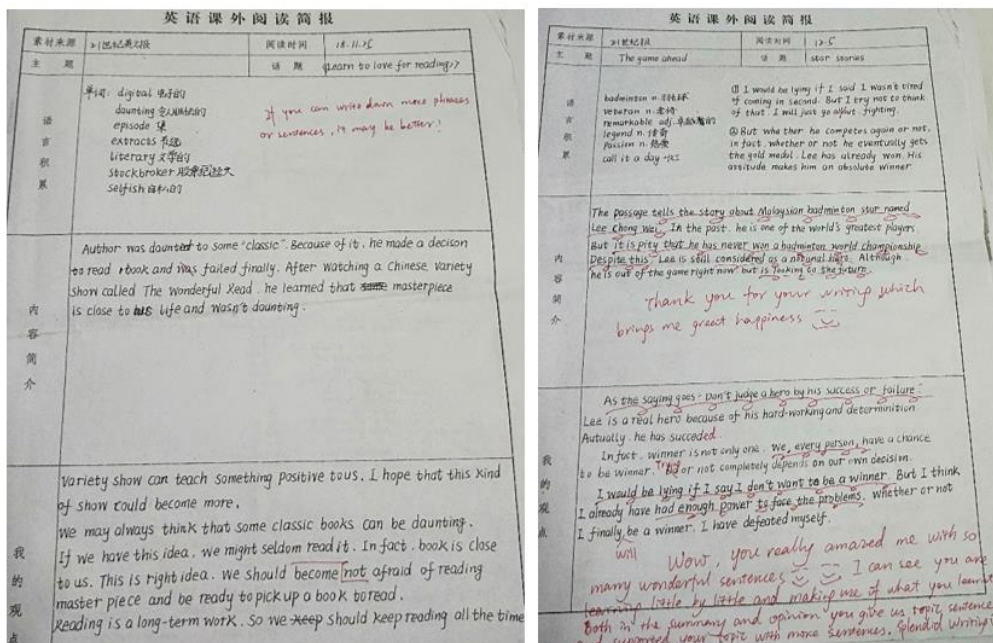 英语课外阅读简报
素材来源 21世纪英文报 阅读时间 18.11.25
主题 话题 《Learn to love for reading》
语言积累
单词: digital 电子的
daunting 令人胆怯的
episode 集
extracts 节选
literary 文学的
stockbroker 股票经纪人
selfish 自私的
If you can write down more phrases
or sentences, it may be better!
内容简介
Author was daunted to some "classic". Because of it, he made a decison
to read book and was failed finally. After watching a Chinese variety
show called The Wonderful Read, he learned that masterpiece
is close to his life and wasn't daunting.
我的观点
Variety show can teach something positive to us. I hope that this kind
of show could become more.
We may always think that some classic books can be daunting.
If we have this idea, we might seldom read it. In fact, book is close
to us. This is right idea. We should become not afraid of reading
master piece and be ready to pick up a book to read.
Reading is a long-term work. So we should keep reading all the time
英语课外阅读简报
素材来源 21世纪报 阅读时间 12-5
主题 The game ahead 话题 star stories
语言积累
badminton n. 羽毛球
veteran n. 老将
remarkable adj. 卓越的
legend n. 传奇
passion n. 热爱
call it a day
① I would be lying if I said I wasn't tired
of coming in second. But I try not to think
of that. I will just go fighting.
② But whether he competes again or not,
in fact, whether or not he eventually gets
the gold medal, Lee has already won. His
attitude makes him an absolute winner.
内容简介
The passage tells the story about Malaysian badminton star named
Lee Chong Wei. In the past, he is one of the world's greatest players.
But it is pity that he has never won a badminton world championship.
Despite this, Lee is still considered as a national hero. Although
he is out of the game right now but is looking to the future.
Thank you for your writing which
brings me great happiness
我的观点
As the saying goes: Don't judge a hero by his success or failure.
Lee is a real hero because of his hard-working and determinition
Autually, he has succeded.
In fact, winner is not only one. We, every person, have a chance
to be winner. or not completely depends on our own decision.
I would be lying if I say I don't want to be a winner. But I think
I already have had enough power to face the problems. Whether or not
I finally be a winner, I have defeated myself.
will
Wow, you really amazed me with so
many wonderful sentences I can see you are
learning little by little and making use of what you learnt
Both in the summary and opinion you give us topic sentence
supported your topic with more sentences. Splendid writing